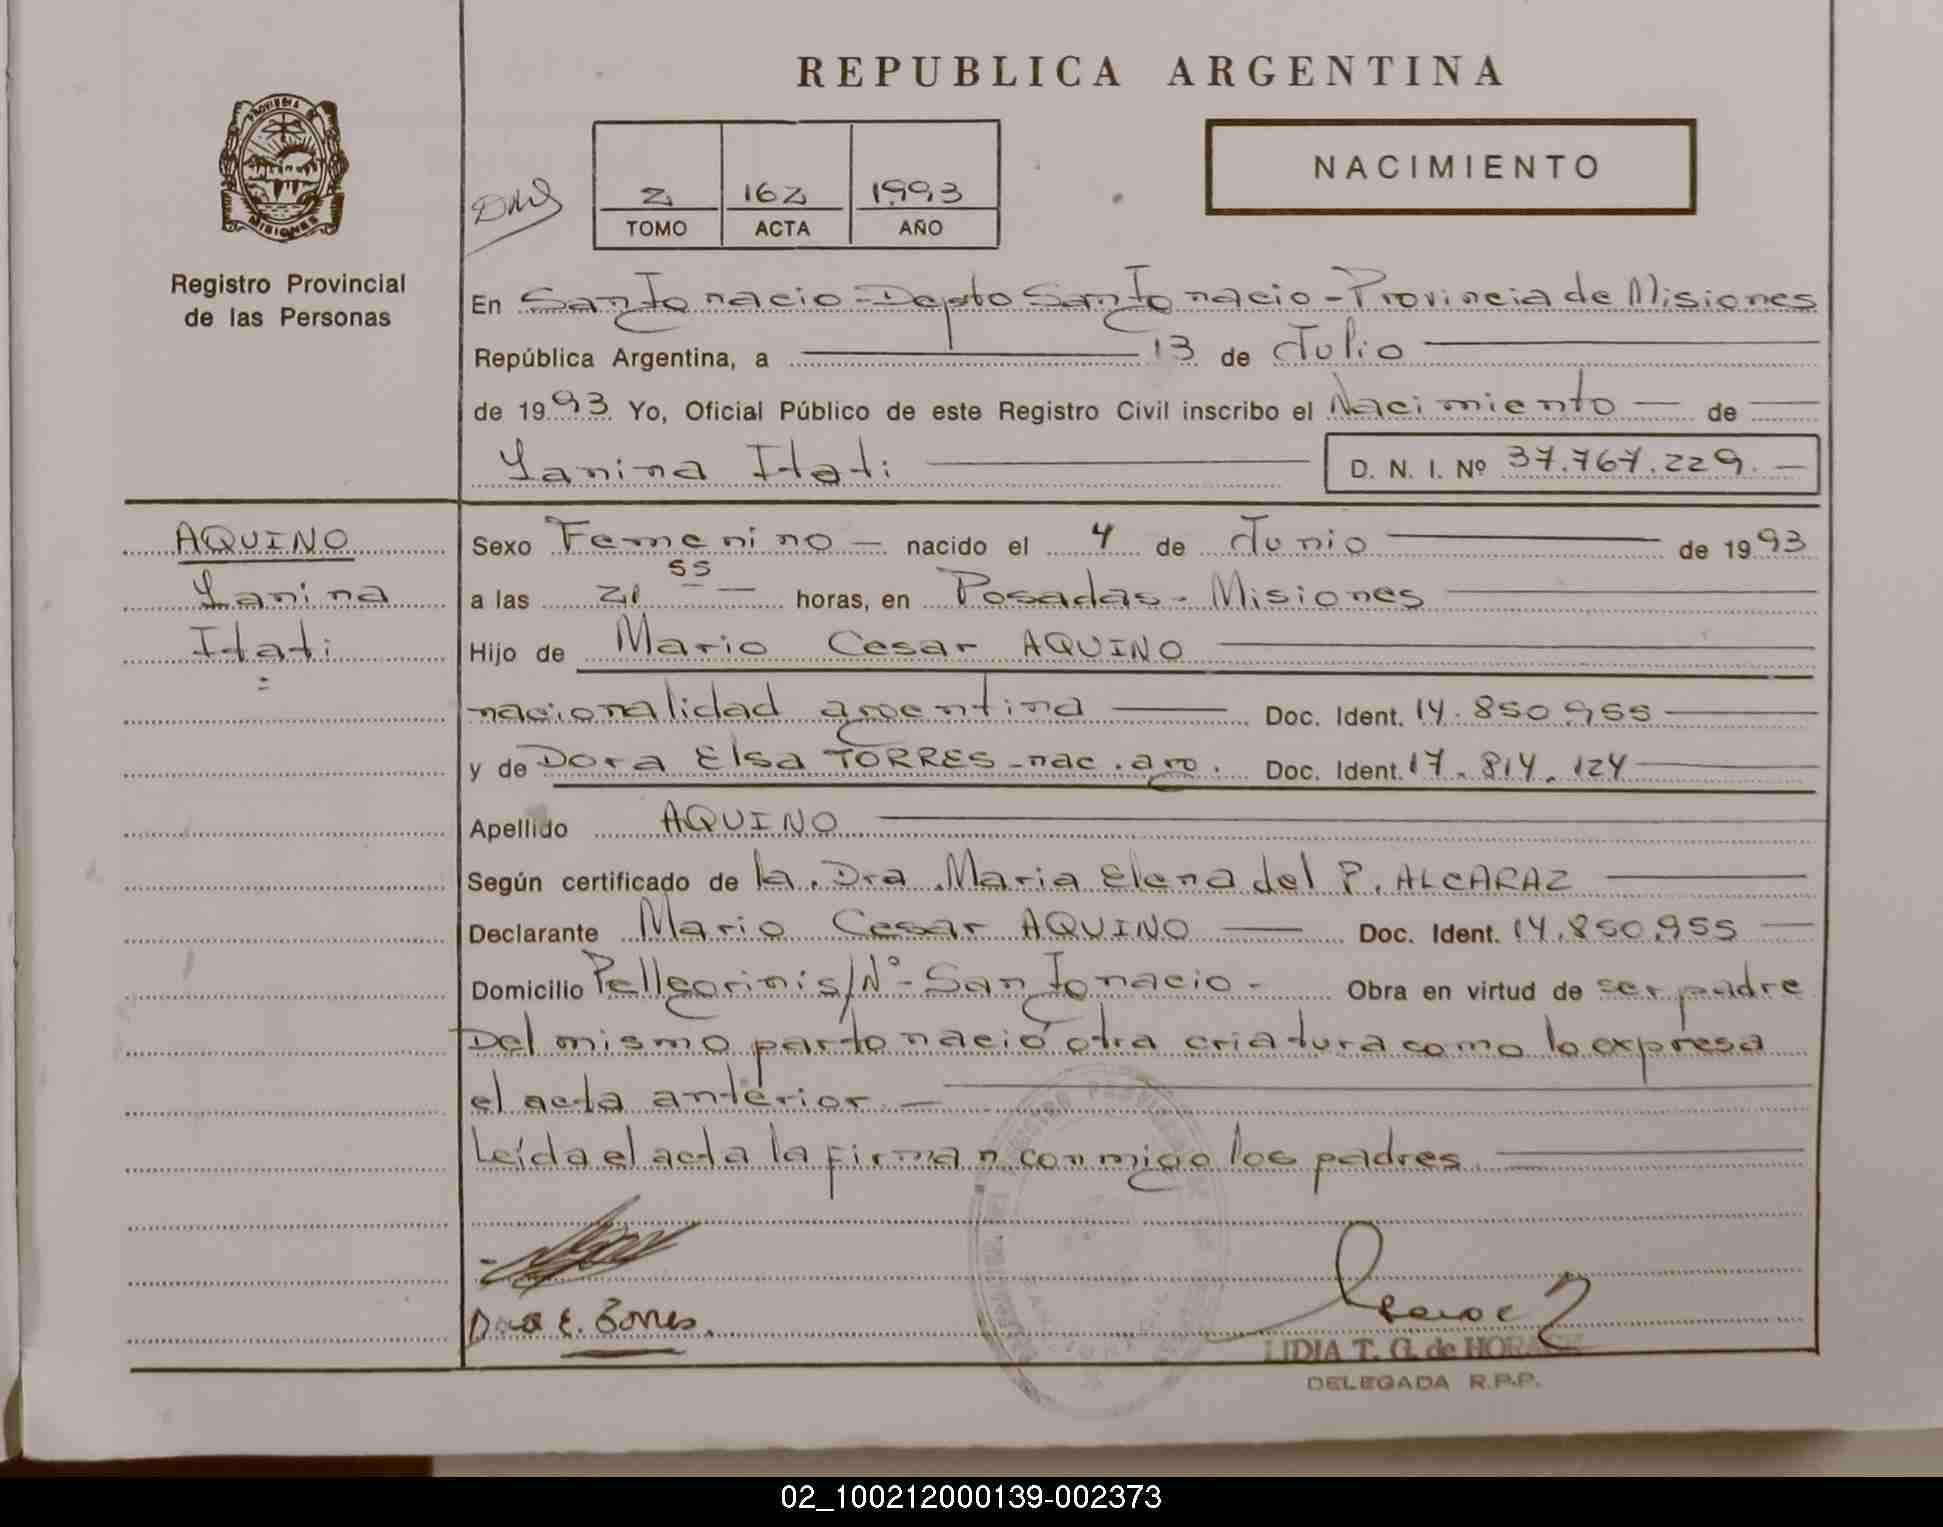 REPUBLICA ARGENTINA
NACIMIENTO
2 162 1993
TOMO ACTA AÑO
PROVINCIA
MISIONES
Registro Provincial
de las Personas
En San Ignacio - Depto San Ignacio - Provincia de Misiones
República Argentina, a 13 de Julio
de 1993 Yo, Oficial Público de este Registro Civil inscribo el Nacimiento — de
Yanina Itati
D. N. I. Nº 37.767.229.—
AQUINO
Yanina
Itati
Sexo Femenino — nacido el 4 de Junio de 1993
a las 21 55 — horas, en Posadas - Misiones
Hijo de Mario Cesar AQUINO
nacionalidad argentina — Doc. Ident. 14.850.955
y de Dora Elsa TORRES - nac. arg. Doc. Ident. 17.814.124
Apellido AQUINO
Según certificado de la Dra Maria Elena del P. ALCARAZ
Declarante Mario Cesar AQUINO — Doc. Ident. 14.850.955 —
Domicilio Pellegrini s/Nº - San Ignacio - Obra en virtud de ser padre
Del mismo parto nació otra criatura como lo expresa
el acta anterior —
Leída el acta la firman conmigo los padres
Dora E. Torres.
LIDIA T. G. de
DELEGADA R.P.P.
02_100212000139-002373